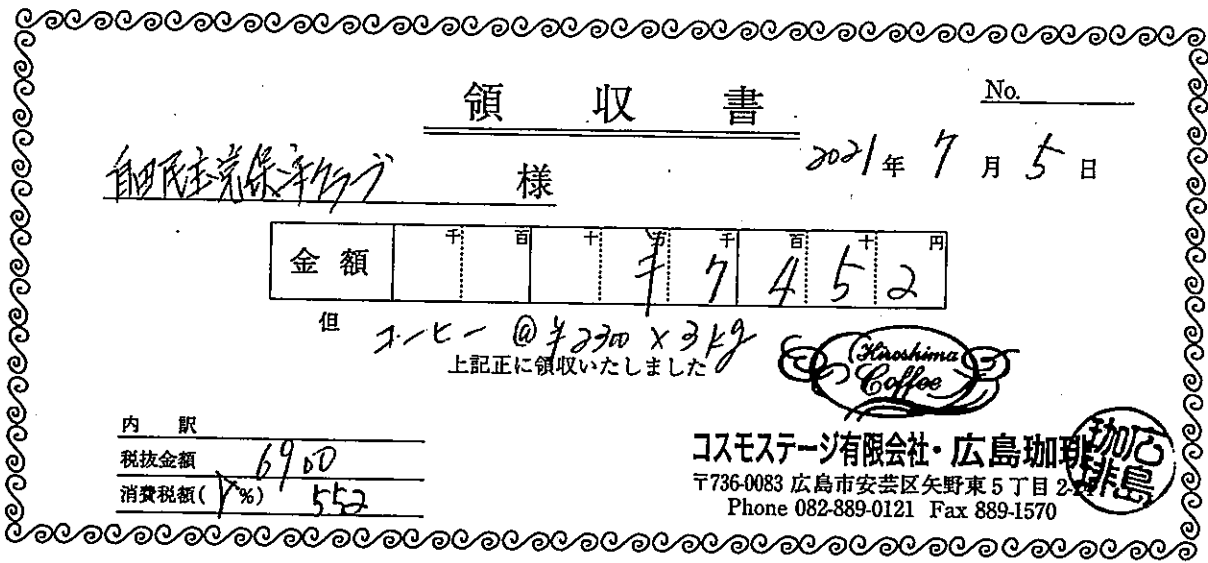 領収書
No.
自由民主党保守クラブ 様
2021年 7月 5日
金額 千 百 十 万 千 百 十 円
¥7452
但 コーヒー @¥2300×3kg
上記正に領収いたしました
Hiroshima
Coffee
内 訳
税抜金額 6900
消費税額(8%) 552
コスモステージ有限会社・広島珈琲
〒736-0083 広島市安芸区矢野東5丁目2-
Phone 082-889-0121 Fax 889-1570
広島
珈琲